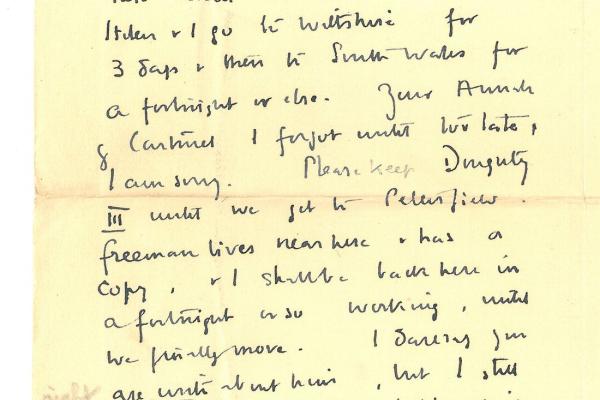 Helen & I go to Wiltshire for
3 days & then to South Wales for
a fortnight or else. Your Annals
& I forgot until too late,
I am sorry. Please keep Doughty
III until we get to Petersfield.
Freeman lives near here & has a
copy, & I shall be back here in
a fortnight or so working, until
we finally move. I daresay you
are write about him, but I still
might